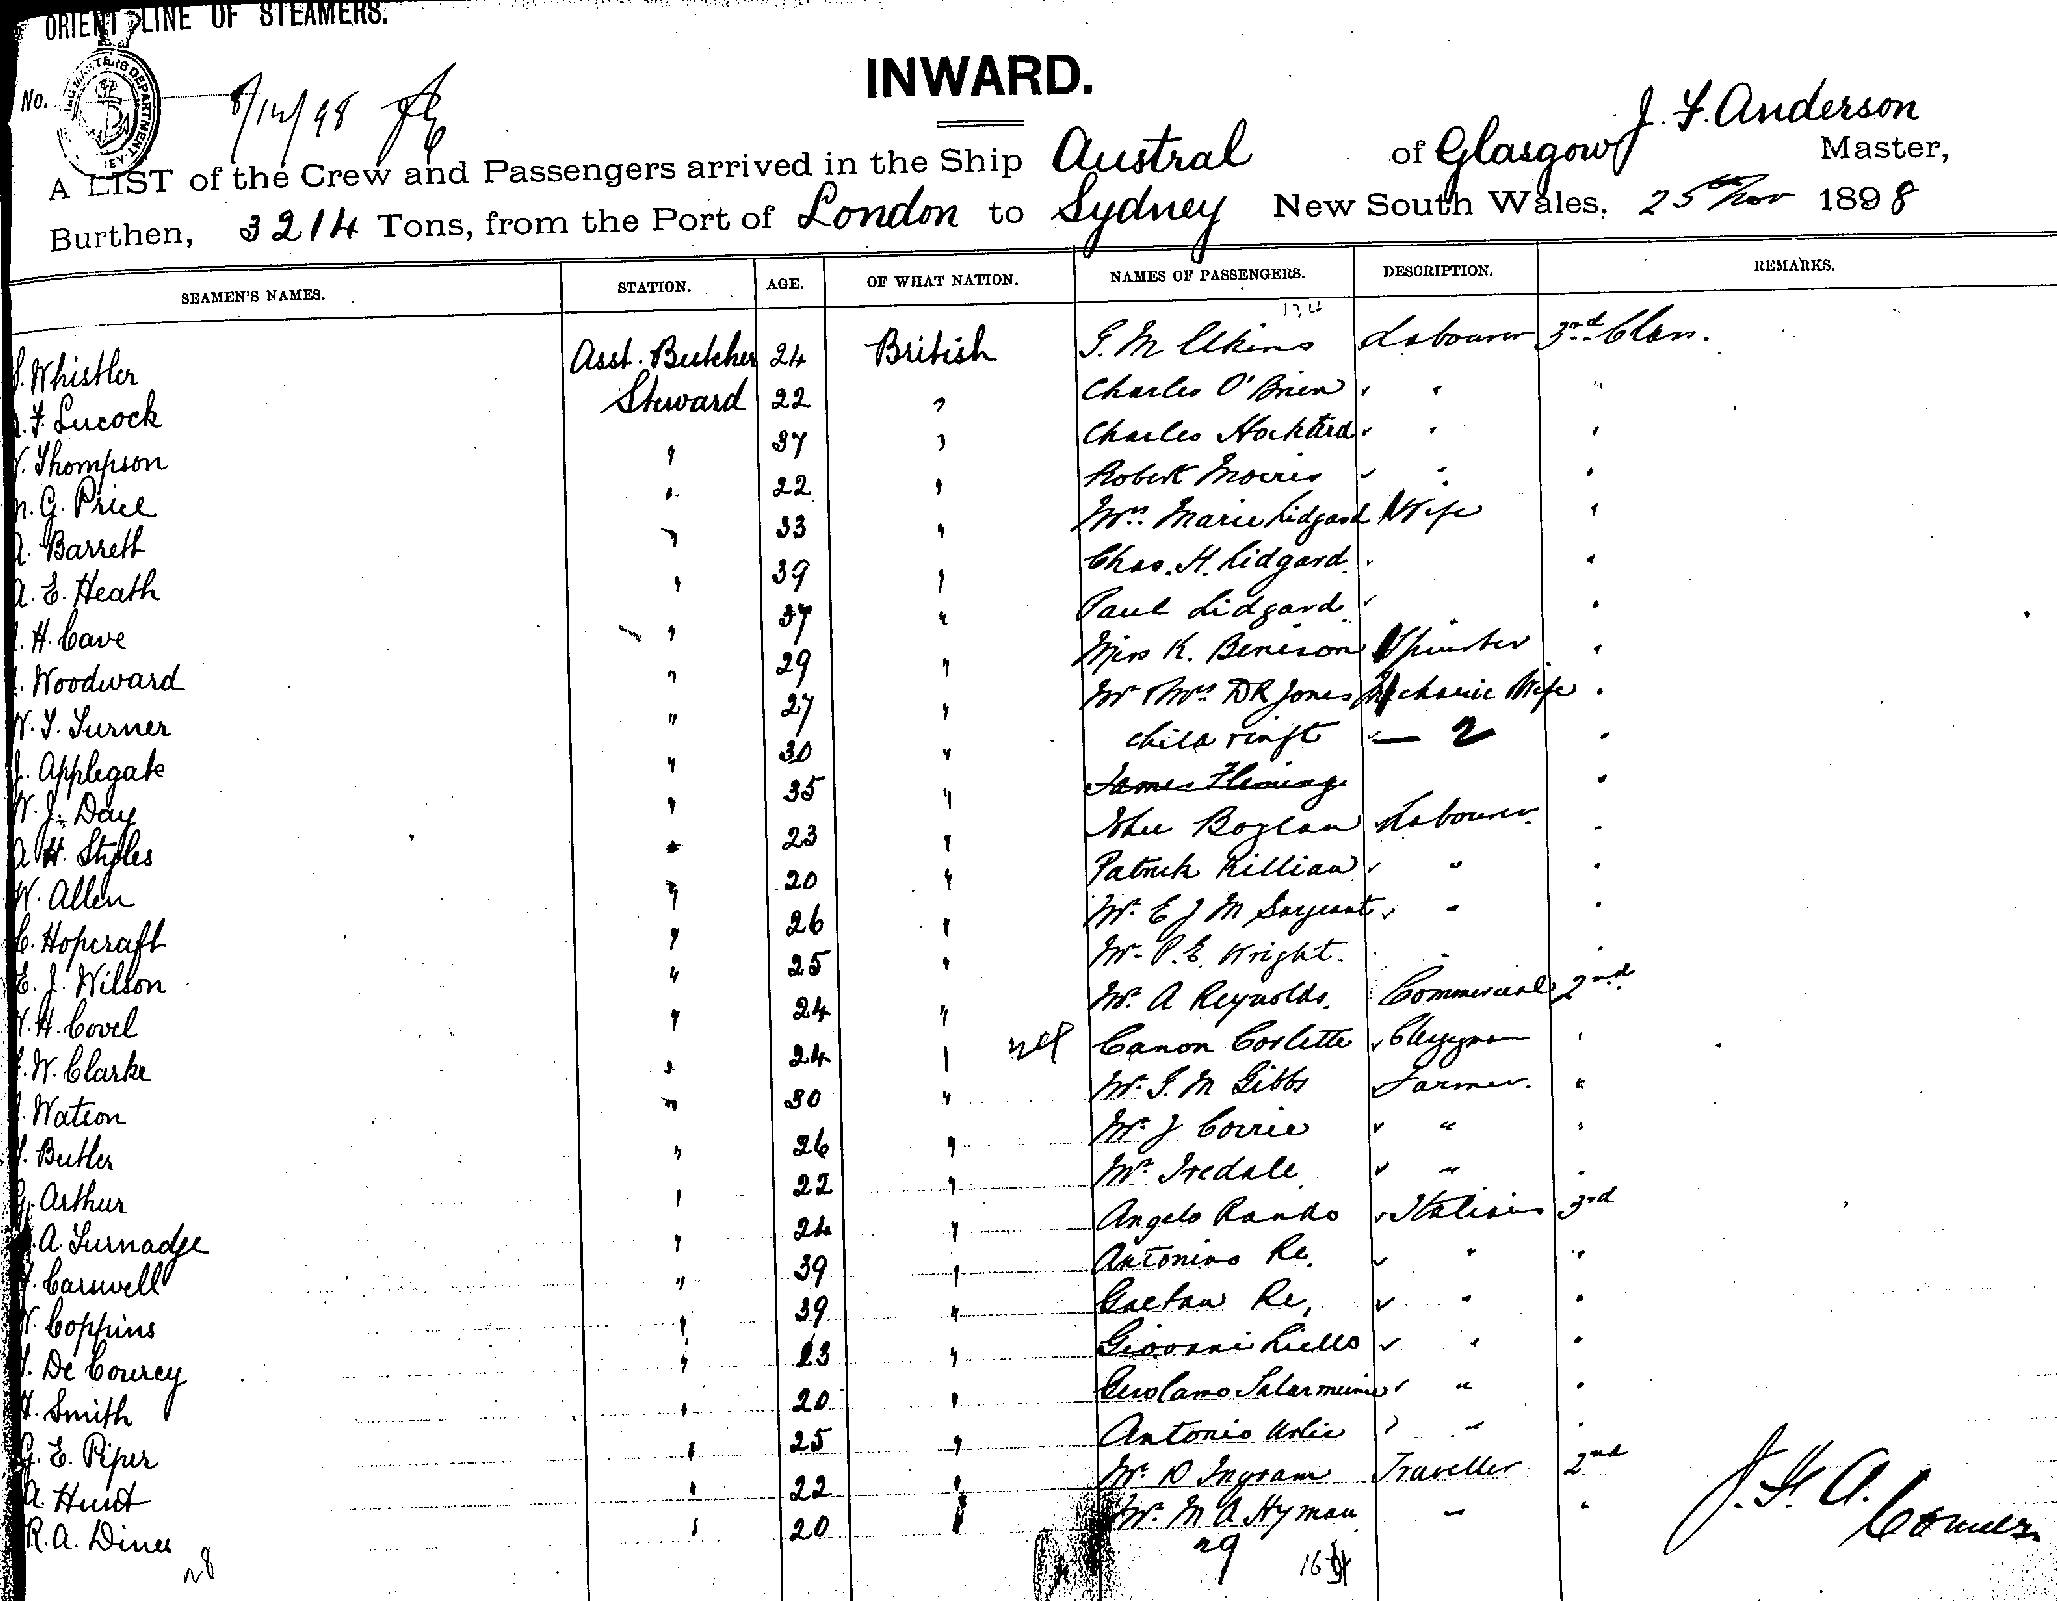 ORIENT LINE OF STEAMERS.
INWARD.
No. 8/12/98
J. F. Anderson
A LIST of the Crew and Passengers arrived in the Ship Austral of Glasgow Master,
Burthen, 3214 Tons, from the Port of London to Sydney New South Wales, 25th Nov 1898
SEAMEN'S NAMES. STATION. AGE. OF WHAT NATION. NAMES OF PASSENGERS. DESCRIPTION. REMARKS.
Whistler Asst. Butcher 24 British G. M Labourer 3rd Class.
F Lucock Steward 22 " Charles O'Brien " " "
Thompson " 37 " Charles " " "
G. Price " 22 " Robert Morris " " "
Barrett " 33 " Mrs. Marie Lidgard Wife "
A. E. Heath " 39 " Chas. H. Lidgard "
H. Cave " 37 " Paul Lidgard "
Woodward " 29 " Miss K. Benison Spinster "
W. T. Turner " 27 " Mr & Mrs D R Jones Mechanic Wife "
J. Applegate " 30 " child & inft — 2 "
W. J. Day " 35 " James Fleming "
A H. Styles " 23 " John Boylan Labourer "
W. Allen " 20 " Patrick Killian " "
C. Hopcraft " 26 " Mr. E J M Sargeant " "
E. J. Wilson " 25 " Mr. P. E. Wright " "
H. Covel " 24 " Mr. A Reynolds. Commercial 2nd
W. Clarke " 24 " Canon Corlette Clergyman "
Watson " 30 " Mr. G. M Gibbs Farmer. "
Butler " 26 " Mr. J Corrie " "
G. Arthur " 22 " Mr. Iredale " "
A. Turnadge " 24 " Angelo Rando Italian 3rd
Carswell " 39 " Antonino Re. " "
W. Coppins " 39 " Gaetan Re. " "
De Courcy " 23 " Giovanni Liello " "
Smith " 20 " "
G. E. Piper " 25 " Antonio " "
A. Hunt " 22 " Mr. D Ingram Traveller 2nd
R. A. Dines " 20 " Mr. M A Hyman " "
28 29
J. F. A.